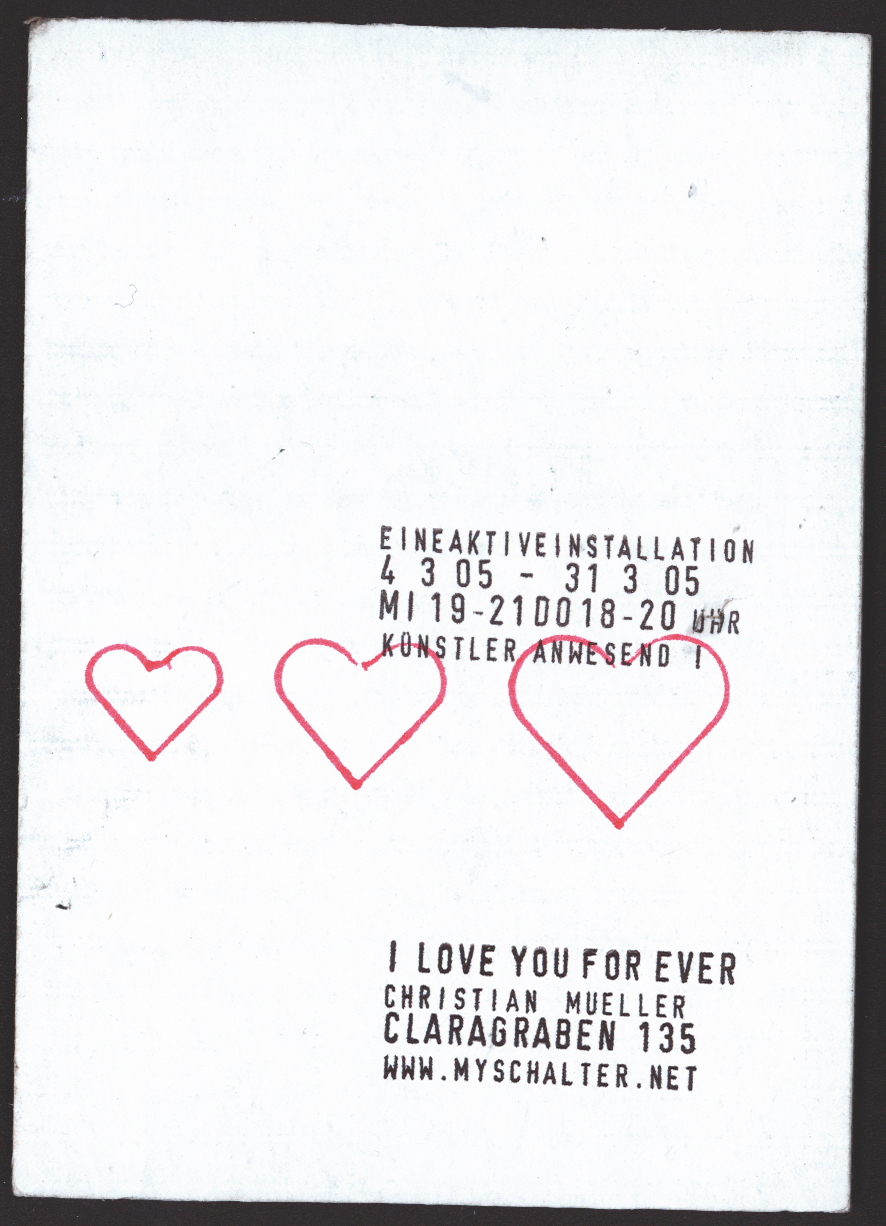 EINEAKTIVEINSTALLATION
4 3 05 - 31 3 05
MI 19-21DO18-20 UHR
KÜNSTLER ANWESEND !
I LOVE YOU FOR EVER
CHRISTIAN MUELLER
CLARAGRABEN 135
WWW.MYSCHALTER.NET